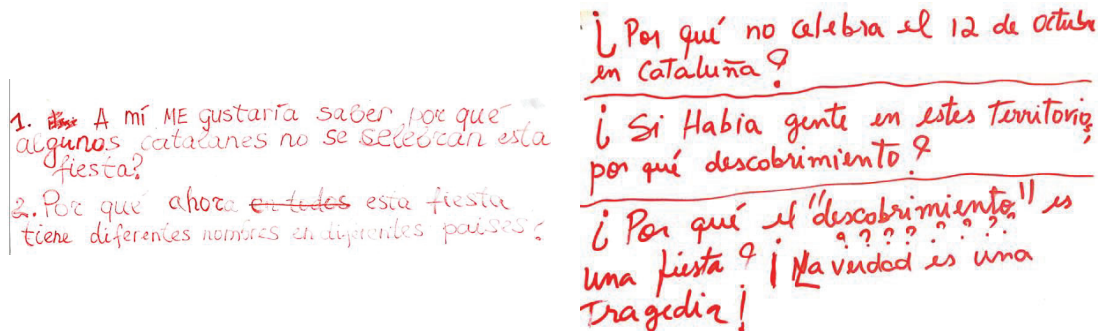 1. A mí ME gustaría saber por qué
algunos catalanes no se selebran esta
fiesta?
2. Por qué ahora en todos esta fiesta
tiene diferentes nombres en diferentes países?
¿Por qué no celebra el 12 de octubre
en Cataluña?
¿Si Habia gente en estes Territorios,
por qué descobrimiento?
¿Por qué el "descobrimiento" es
? ? ? ? ? ? ? ?
una fiesta? ¡La verdad es una
Tragedia!